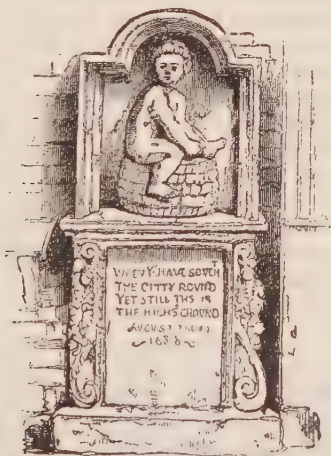 Y HAVE SOVGH
THE CITTY ROVND
YET STILL THS IS
THE HIGHS GROVND
AVGVST
1688